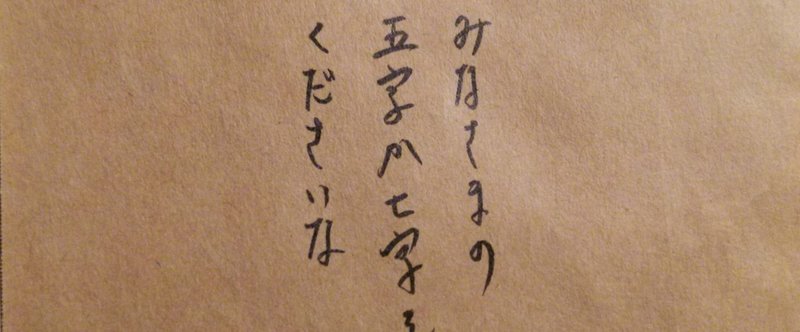 みなさまの
五字か七字を
くださいな